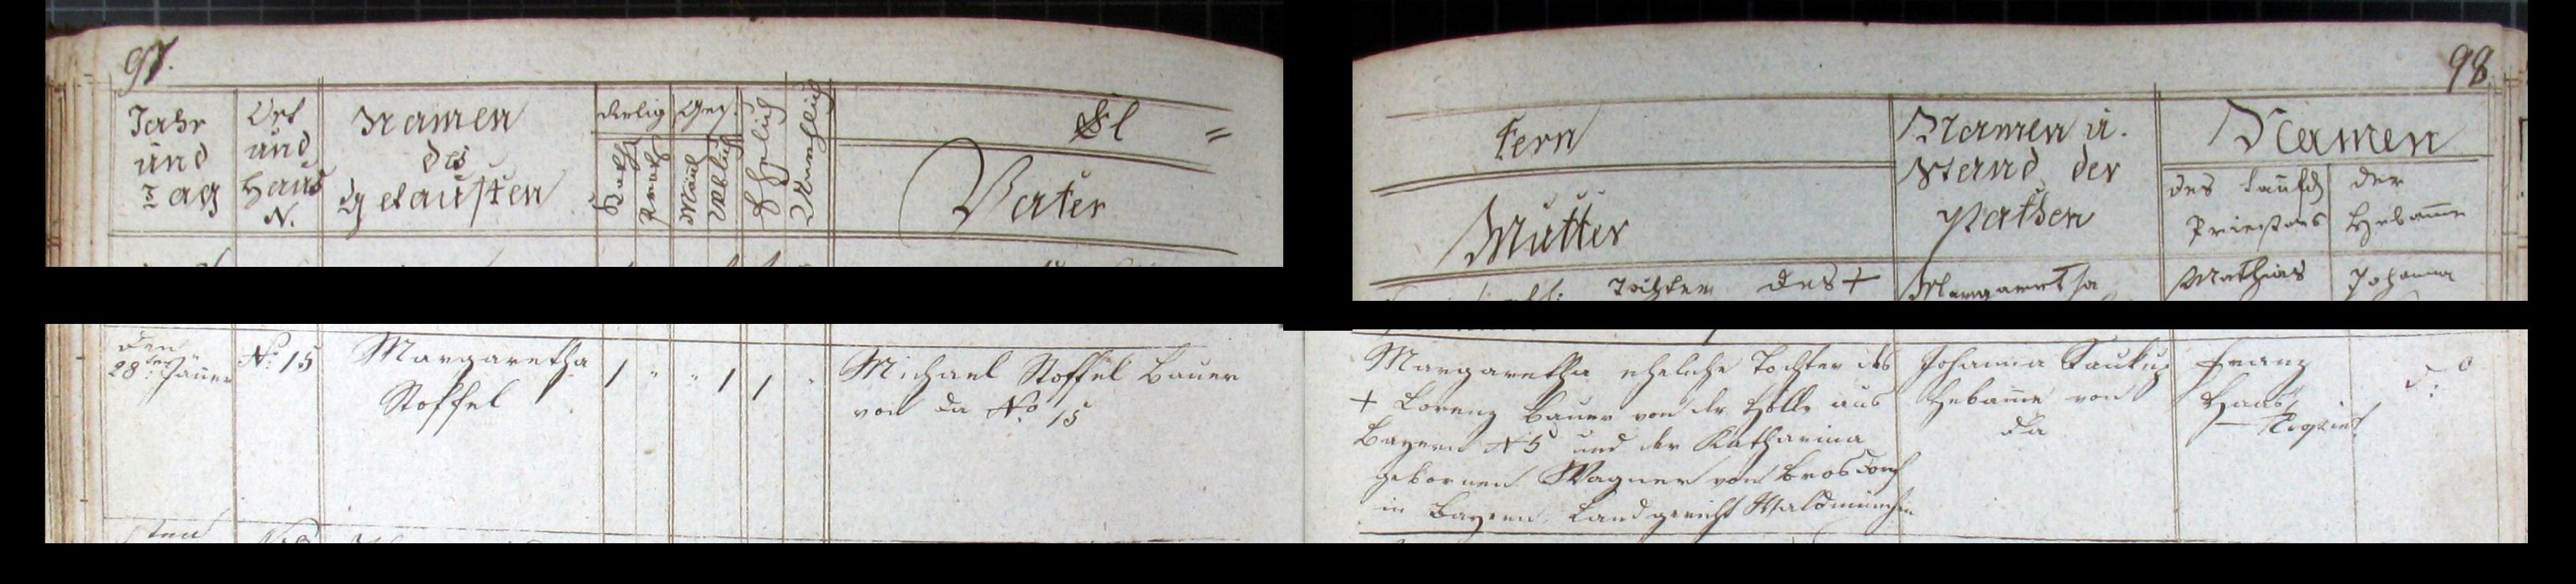 97.
Jahr
und
Tag
Ort
und
Haus
N.
Namen
des
Getauften
Relig
Kath
Prot
Ges.
Mänl
Weiblich
Ehelich
Unehlich
El =
Vater
98
tern
Mutter
Namen u.
Stand der
Pathen
Namen
des
Priesters
der
Hebamme
Tochter des +
Margaretha
Mathias
Johanna
den
28ten Jäner
No. 15
Margaretha
Stoffel
1 " " 1 1 "
Michael Stoffel Bauer
von da No. 15
Margaretha eheliche Tochter des
+ Lorenz Bauer von der Höll aus
Bayern N 5 und der Katharina
gebornen Wagner von
in Bayern, Landgericht Waldmünchen
Johanna
Hebame von
da
Franz
Haas
d:o